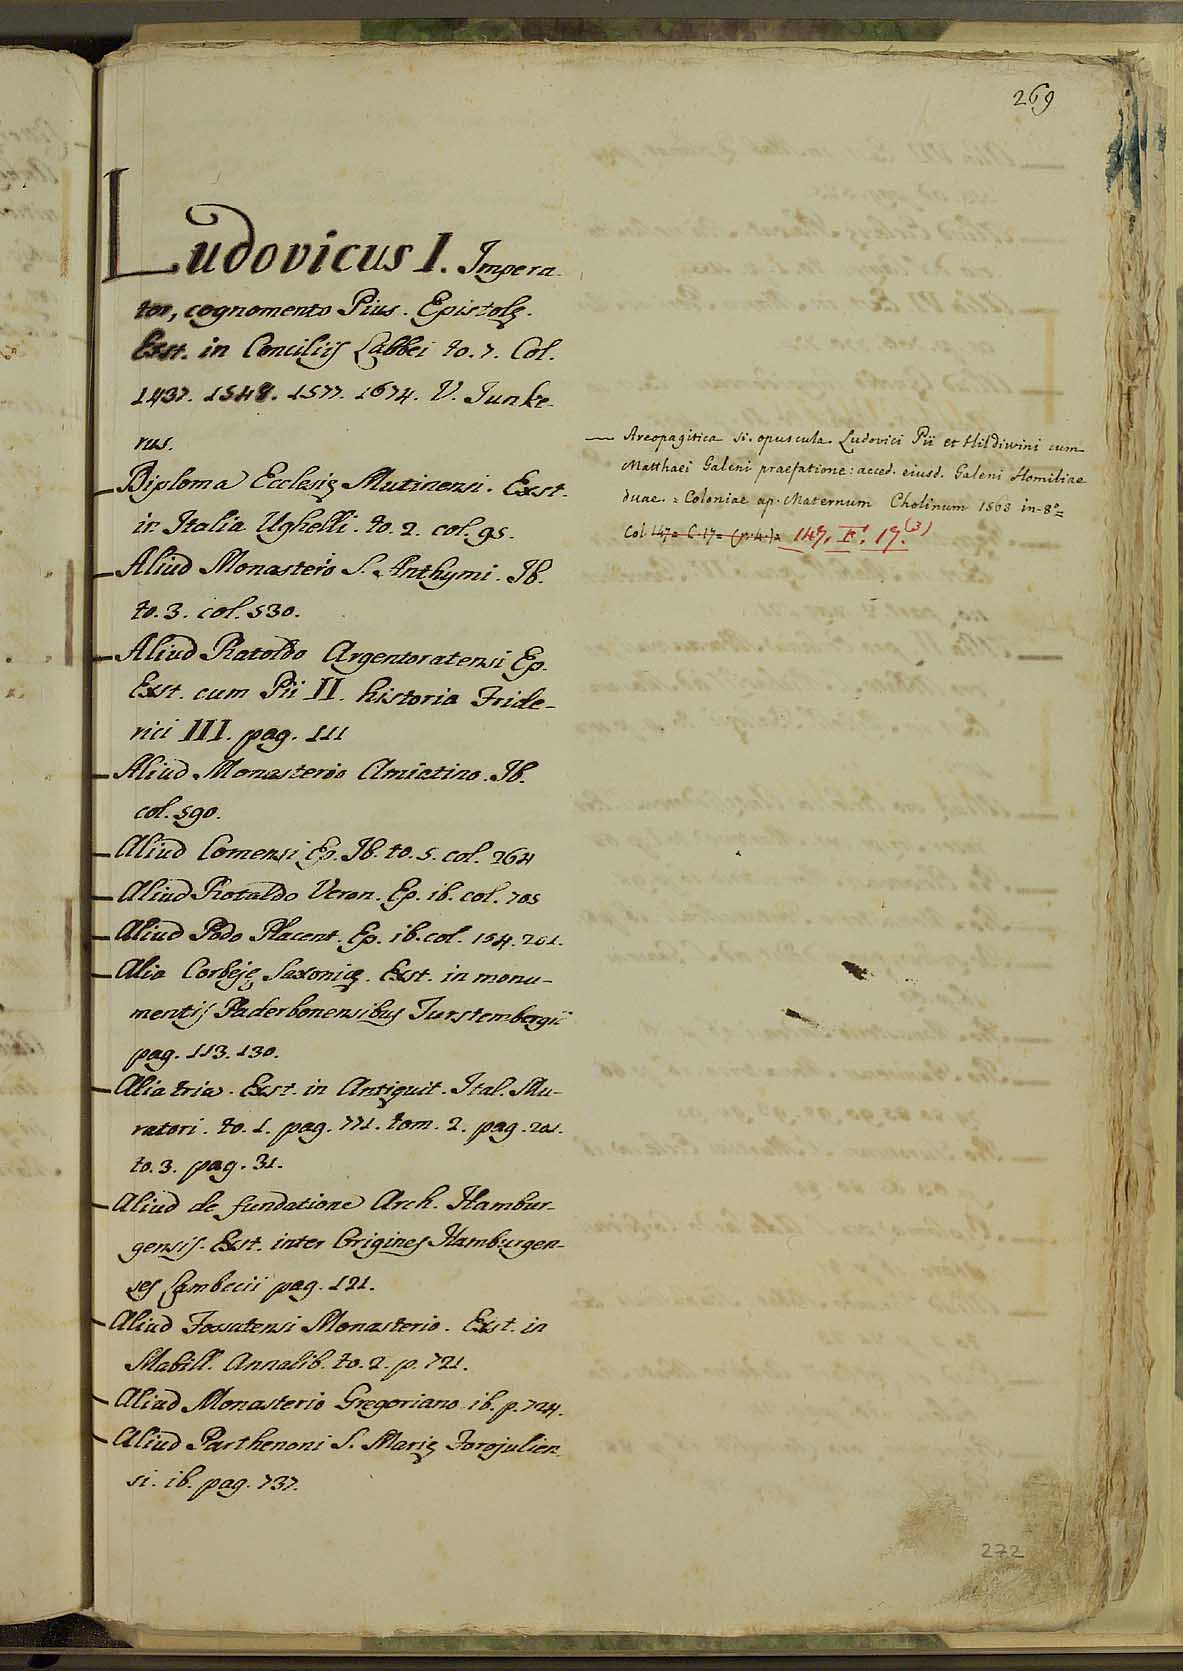 269
Ludovicus I. Impera-
tor, cognomento Pius. Epistolę.
Exst. in Conciliis Labbei to. 7. Col.
1437. 1548. 1577. 1674. V. Junke-
rus.
Diploma Ecclesię Mutinensi. Exst.
in Italia Ughelli. to. 2. col. 95.
Aliud Monasterio S. Anthymi. Ib.
to. 3. col. 530.
Aliud Ratoldo Argentoratensi Ep.
Exst. cum Pii II. historia Fride-
rici III. pag. 111
Aliud Monasterio Amiatino. Ib.
col. 590.
Aliud Comensi Ep. Ib. to. 5. col. 264
Aliud Rotaldo Veron. Ep. ib. col. 705
Aliud Podo Placent. Ep. ib. col. 154. 201.
Alia Corbeję Saxonię. Exst. in monu-
mentis Paderbonensibus Furstembergii
pag. 113. 130.
Alia tria. Exst. in Antiquit. Ital. Mu-
ratori. to. 1. pag. 771. tom. 2. pag. 201.
to. 3. pag. 31.
Aliud de fundatione Arch. Hambur-
gensis. Exst. inter Origines Hamburgen-
ses Lambecii pag. 121.
Aliud Fossatensi Monasterio. Exst. in
Mabill. Annalib. to. 2. p. 721.
Aliud Monasterio Gregoriano ib. p. 724.
Aliud Parthenoni S. Marię Forojulien-
si. ib. pag. 737.
— Areopagitica si. opuscula Ludovici Pii et Hilduini cum
Matthaei Galeni praefatione: acced. eiusd. Galeni Homiliae
duae. = Coloniae ap. Maternum Cholinum 1563 in-8° =
Col. 147. C. 17. (p. 4.) 147. F. 17. (3)
272